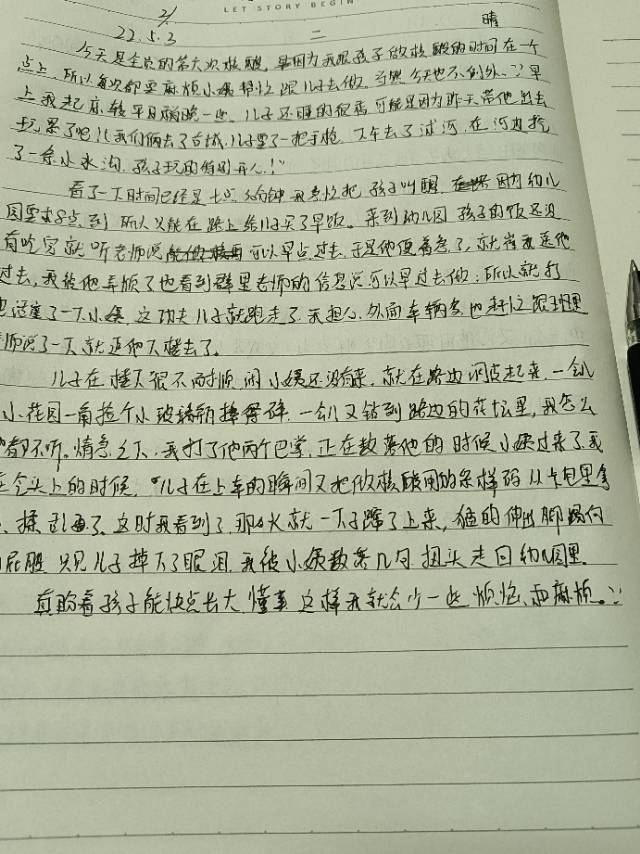 LET STORY BEGIN
21
22.5.3 二 晴
今天是全员的第六次核酸,因为我跟孩子做核酸的时间在一个
点上,所以每次都要麻烦小姨帮忙跟儿子去做。当然今天也不例外。早
上我起床较平日稍晚一些,儿子还睡的很香,可能是因为昨天带他出去
玩累了吧!我们俩去了古城,儿子要了一把手枪,下午去了沭河,在河边挖
了一条小水沟,孩子玩的特别开心!
看了一下时间已经是七点分钟,我急忙把孩子叫醒,因为幼儿
园要求8点到,所以只能在路上给儿子买了早饭。来到幼儿园孩子的饭还没
有吃完就听老师说可以早点过去,于是他便着急了,就催我送他
过去,我被他弄烦了也看到群里老师的信息说可以早过去做;所以就打
电话催了一下小姨,这功夫儿子就跑走了,我担心外面车辆多,也赶忙跟班里
老师说了一下就送他下楼去了。
儿子在楼下很不耐烦,问小姨还没有来,就在路边闲逛起来,一会儿
小花园一角捡个小玻璃瓶摔得碎,一会儿又钻到路边的花坛里,我怎么
他都不听。情急之下,我打了他两个巴掌,正在教育他的时候小姨过来了,我
在气头上的时候,儿子在上车的瞬间又把做核酸用的采样码从卡包里拿
揉乱了,这时我看到了,那火就一下子蹿了上来,猛的伸出脚踢向
屁股,只见儿子掉下了眼泪,我被小姨数落几句,扭头走回幼儿园里。
真盼着孩子能快点长大,懂事,这样我就会少一些烦恼,和麻烦。